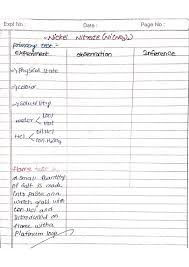 Expl No.: Date: Page No.:
Nickel Nitrate (Ni(NO3)2)
Primary test :-
Experiment Observation Inference
→ Physical state
→ colour
→ Solubility
water
HCl
Flame test :-
A small quantity
of salt is made
into paste on a
watch glass with
con. HCl and
introduced on
flame with a
Platinum loop